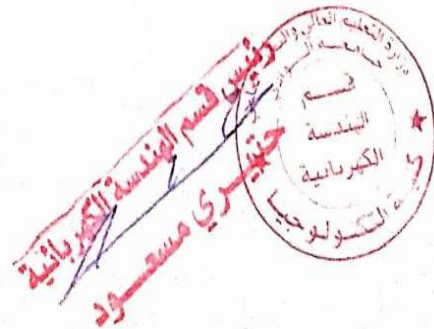 رئيس قسم الهندسة الكهربائية
مسعود
وزارة التعليم العالي
جامعة الوادي
قسم
الهندسة
الكهربائية
كلية التكنولوجيا